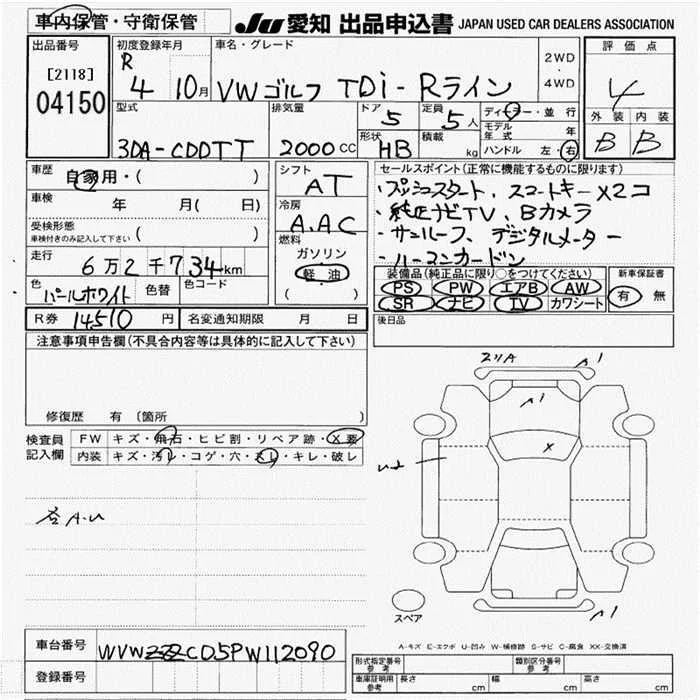 車内保管・守衛保管
JU 愛知 出品申込書 JAPAN USED CAR DEALERS ASSOCIATION
出品番号
[2118]
04150
初度登録年月
R 4 10月
車名・グレード
VWゴルフ TDi-Rライン
2WD
・
4WD
評価点
4
外装 内装
B B
型式
3DA-CDDTT
排気量
2000cc
ドア
5
定員
5人
形状
HB
積載
kg
ディーラー・並行
モデル年式 年
ハンドル 左・右
車歴
自家用・( )
車検
年 月( 日)
受検形態
車検付きのみ記入して下さい ( )
走行
6万2千734km
色
パールホワイト
色替
色コード
シフト
AT
冷房
A.AC
燃料
ガソリン
軽油
( )
セールスポイント(正常に機能するものに限ります)
・プッシュスタート、スマートキー×2コ
・純正ナビTV、Bカメラ
・サンルーフ、デジタルメーター
装備品(純正品に限り○をつけてください)
PS PW エアB AW
SR ナビ TV カワシート
新車保証書
有 無
R券 14510円
名変通知期限 月 日
後日品
注意事項申告欄(不具合内容等は具体的に記入して下さい)
修復歴 有 〔箇所 〕
検査員記入欄
FW キズ・飛石・ヒビ割・リペア跡・X要
内装 キズ・汚レ・コゲ・穴・スレ・キレ・破レ
各A-U
スリA
A1
A1
X
A1
スペア
A-キズ E-エクボ U-凹み W-補修跡 S-サビ C-腐食 XX-交換済
車台番号
WVWZZZCD5PW112090
登録番号
形式指定番号 参考
類別区分番号 参考
車庫証明用 参考
長さ cm
幅 cm
高さ cm